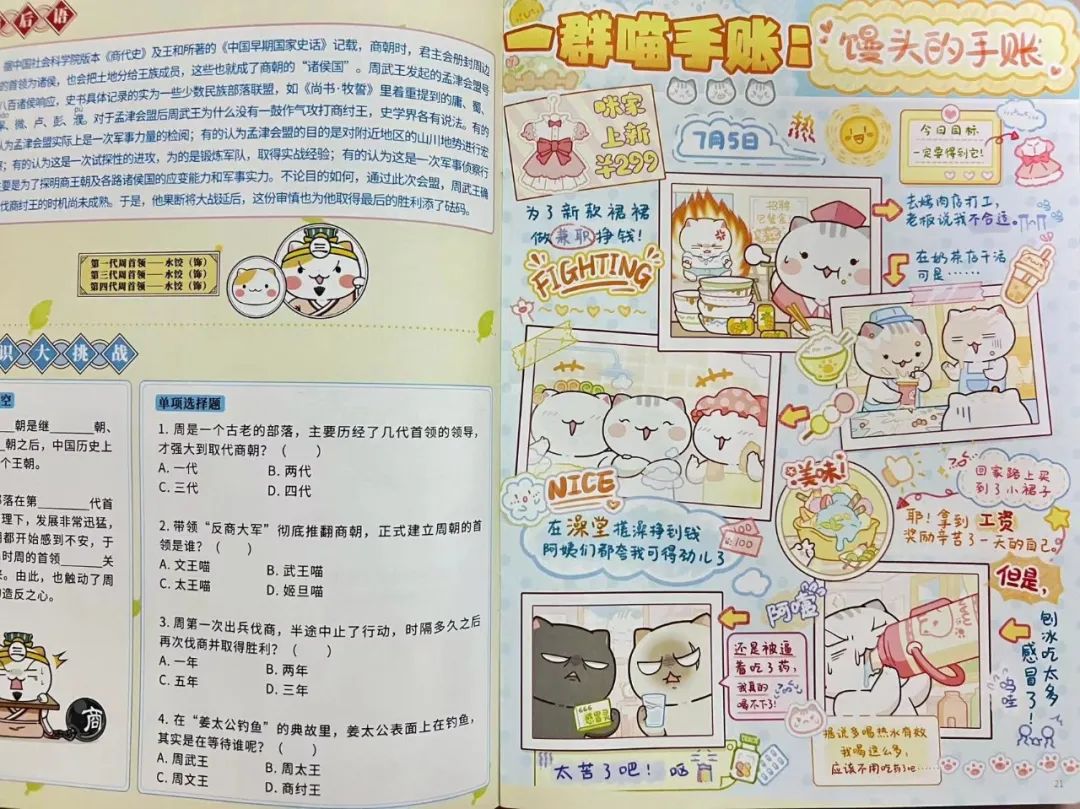 后语
据中国社会科学院版本《商代史》及王和所著的《中国早期国家史话》记载，商朝时，君主会册封周边
的首领为诸侯，也会把土地分给王族成员，这些也就成了商朝的“诸侯国”。周武王发起的孟津会盟号
八百诸侯响应，史书具体记录的实为一些少数民族部落联盟，如《尚书·牧誓》里着重提到的庸、蜀、
微、卢、彭、濮。对于孟津会盟后周武王为什么没有一鼓作气攻打商纣王，史学界各有说法。有的
认为孟津会盟实际上是一次军事力量的检阅；有的认为孟津会盟的目的是对附近地区的山川地势进行宏
；有的认为这是一次试探性的进攻，为的是锻炼军队，取得实战经验；有的认为这是一次军事侦察行
主要是为了探明商王朝及各路诸侯国的应变能力和军事实力。不论目的如何，通过此次会盟，周武王确
伐商纣王的时机尚未成熟。于是，他果断将大战延后，这份审慎也为他取得最后的胜利添了砝码。
第一代周首领——水饺（饰）
第三代周首领——水饺（饰）
第四代周首领——水饺（饰）
三
识大挑战
空
朝是继______朝、
朝之后，中国历史上
个王朝。
部落在第______代首
理下，发展非常迅猛，
朝都开始感到不安，于
当时周的首领______关
。由此，也触动了周
造反之心。
三
商
单项选择题
1. 周是一个古老的部落，主要历经了几代首领的领导，
才强大到取代商朝？（　　）
A. 一代　B. 两代
C. 三代　D. 四代
2. 带领“反商大军”彻底推翻商朝，正式建立周朝的首
领是谁？（　　）
A. 文王喵　B. 武王喵
C. 太王喵　D. 姬旦喵
3. 周第一次出兵伐商，半途中止了行动，时隔多久之后
再次伐商并取得胜利？（　　）
A. 一年　B. 两年
C. 五年　D. 三年
4. 在“姜太公钓鱼”的典故里，姜太公表面上在钓鱼，
其实是在等待谁呢？（　　）
A. 周武王　B. 周太王
C. 周文王　D. 商纣王
一群喵手账：
馒头的手账
咪家
上新
¥299
7月5日
热
今日目标
一定拿得到它！
为了新款裙裙
做兼职挣钱！
FIGHTING
招聘
去烤肉店打工，
老板说我不合适。
在奶茶店干活
可是……
NICE
在澡堂搓澡挣到钱
阿姨们都夸我可得劲儿了
100
100
美味！
回家路上买
到了小裙子
耶！拿到工资
奖励辛苦了一天的自己。
但是，
刨冰吃太多
感冒了！
呜哇
阿嚏
据说多喝热水有效
我喝这么多，
应该不用吃药了吧……
还是被逼
着吃了药，
我真的
喝不下了！
666
感冒灵
太苦了吧！呕
21